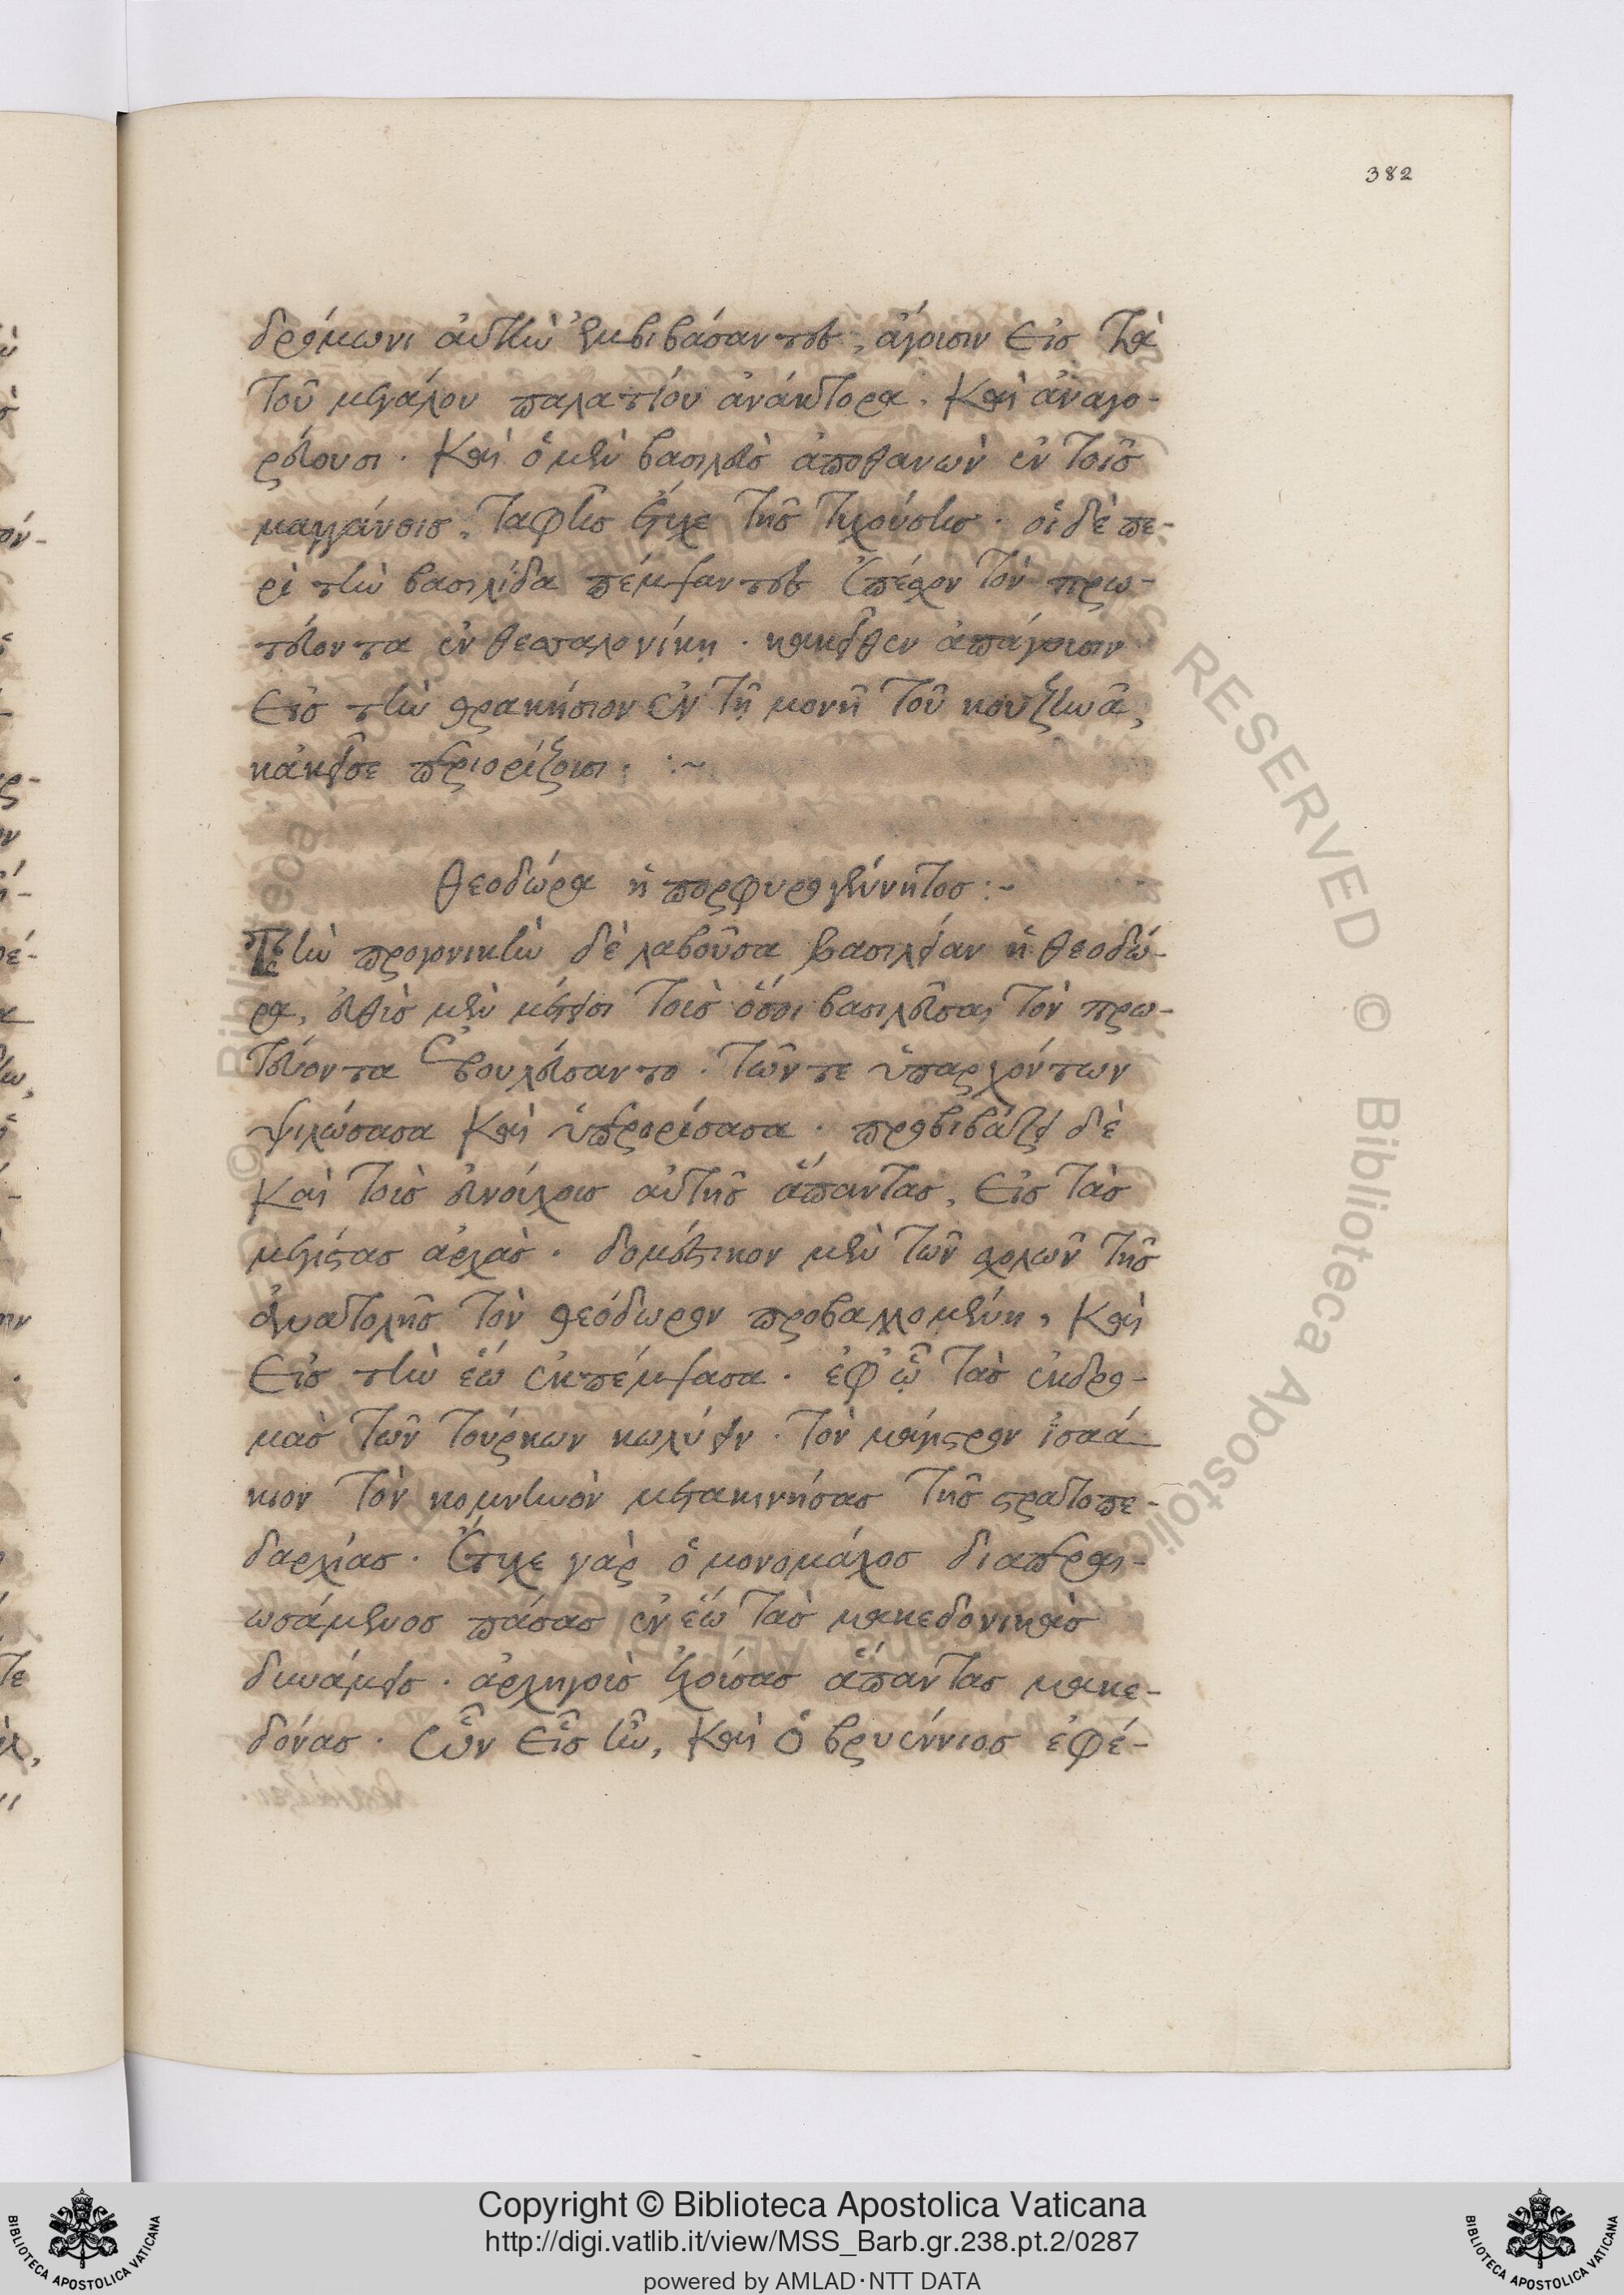 382
δρόμωνι αὐτὴν ἐμβιβάσαντες, ἄγουσιν εἰς τὰ
τοῦ μεγάλου παλατίου ἀνάκτορα. καὶ ἀναγο-
ρεύουσι. καὶ ὁ μὲν βασιλεὺς ἀποθανὼν ἐν τοῖς
μαγγάνοις, ταφῆς ἔτυχε τῆς τυχούσης. οἱ δὲ πε-
ρὶ τὴν βασιλίδα πέμψαντες ἐπέσχον τὸν πρω-
τεύοντα ἐν θεσσαλονίκῃ. κακεῖθεν ἀπάγουσιν
εἰς τὴν θρακήσιον ἐν τῇ μονῇ τοῦ κουζηνᾶ,
κἀκεῖσε περιορίζουσι. :~
θεοδώρα ἡ πορφυρογέννητος :~
Τὴν προγονικὴν δὲ λαβοῦσα βασιλείαν ἡ θεοδώ-
ρα, εὐθὺς μὲν μέτεισι τοὺς ὅσοι βασιλεῦσαι τὸν πρω-
τεύοντα ἐβουλεύσαντο. τῶν τε ὑπαρχόντων
ψιλώσασα καὶ ὑπερορίσασα. προβιβάζει δὲ
καὶ τοὺς εὐνούχους αὐτῆς ἅπαντας, εἰς τὰς
μεγίστας ἀρχὰς. δομέστικον μὲν τῶν σχολῶν τῆς
ἀνατολῆς τὸν θεόδωρον προβαλλομένη, καὶ
εἰς τὴν ἕω ἐκπέμψασα. ἐφ' ᾧ τὰς ἐκδρο-
μὰς τῶν τούρκων κωλύειν. τὸν μάγιστρον ἰσαά-
κιον τὸν κομνηνὸν μετακινήσας τῆς στρατοπε-
δαρχίας. ἔτυχε γὰρ ὁ μονομάχος διαπεραι-
ωσάμενος πάσας ἐν ἕω τὰς μακεδονικὰς
δυνάμεις. ἀρχηγοὺς ἐχούσας ἅπαντας μακε-
δόνας. ὧν εἷς ἦν, καὶ ὁ βρυέννιος ἐφέ-
Copyright © Biblioteca Apostolica Vaticana
http://digi.vatlib.it/view/MSS_Barb.gr.238.pt.2/0287
powered by AMLAD·NTT DATA